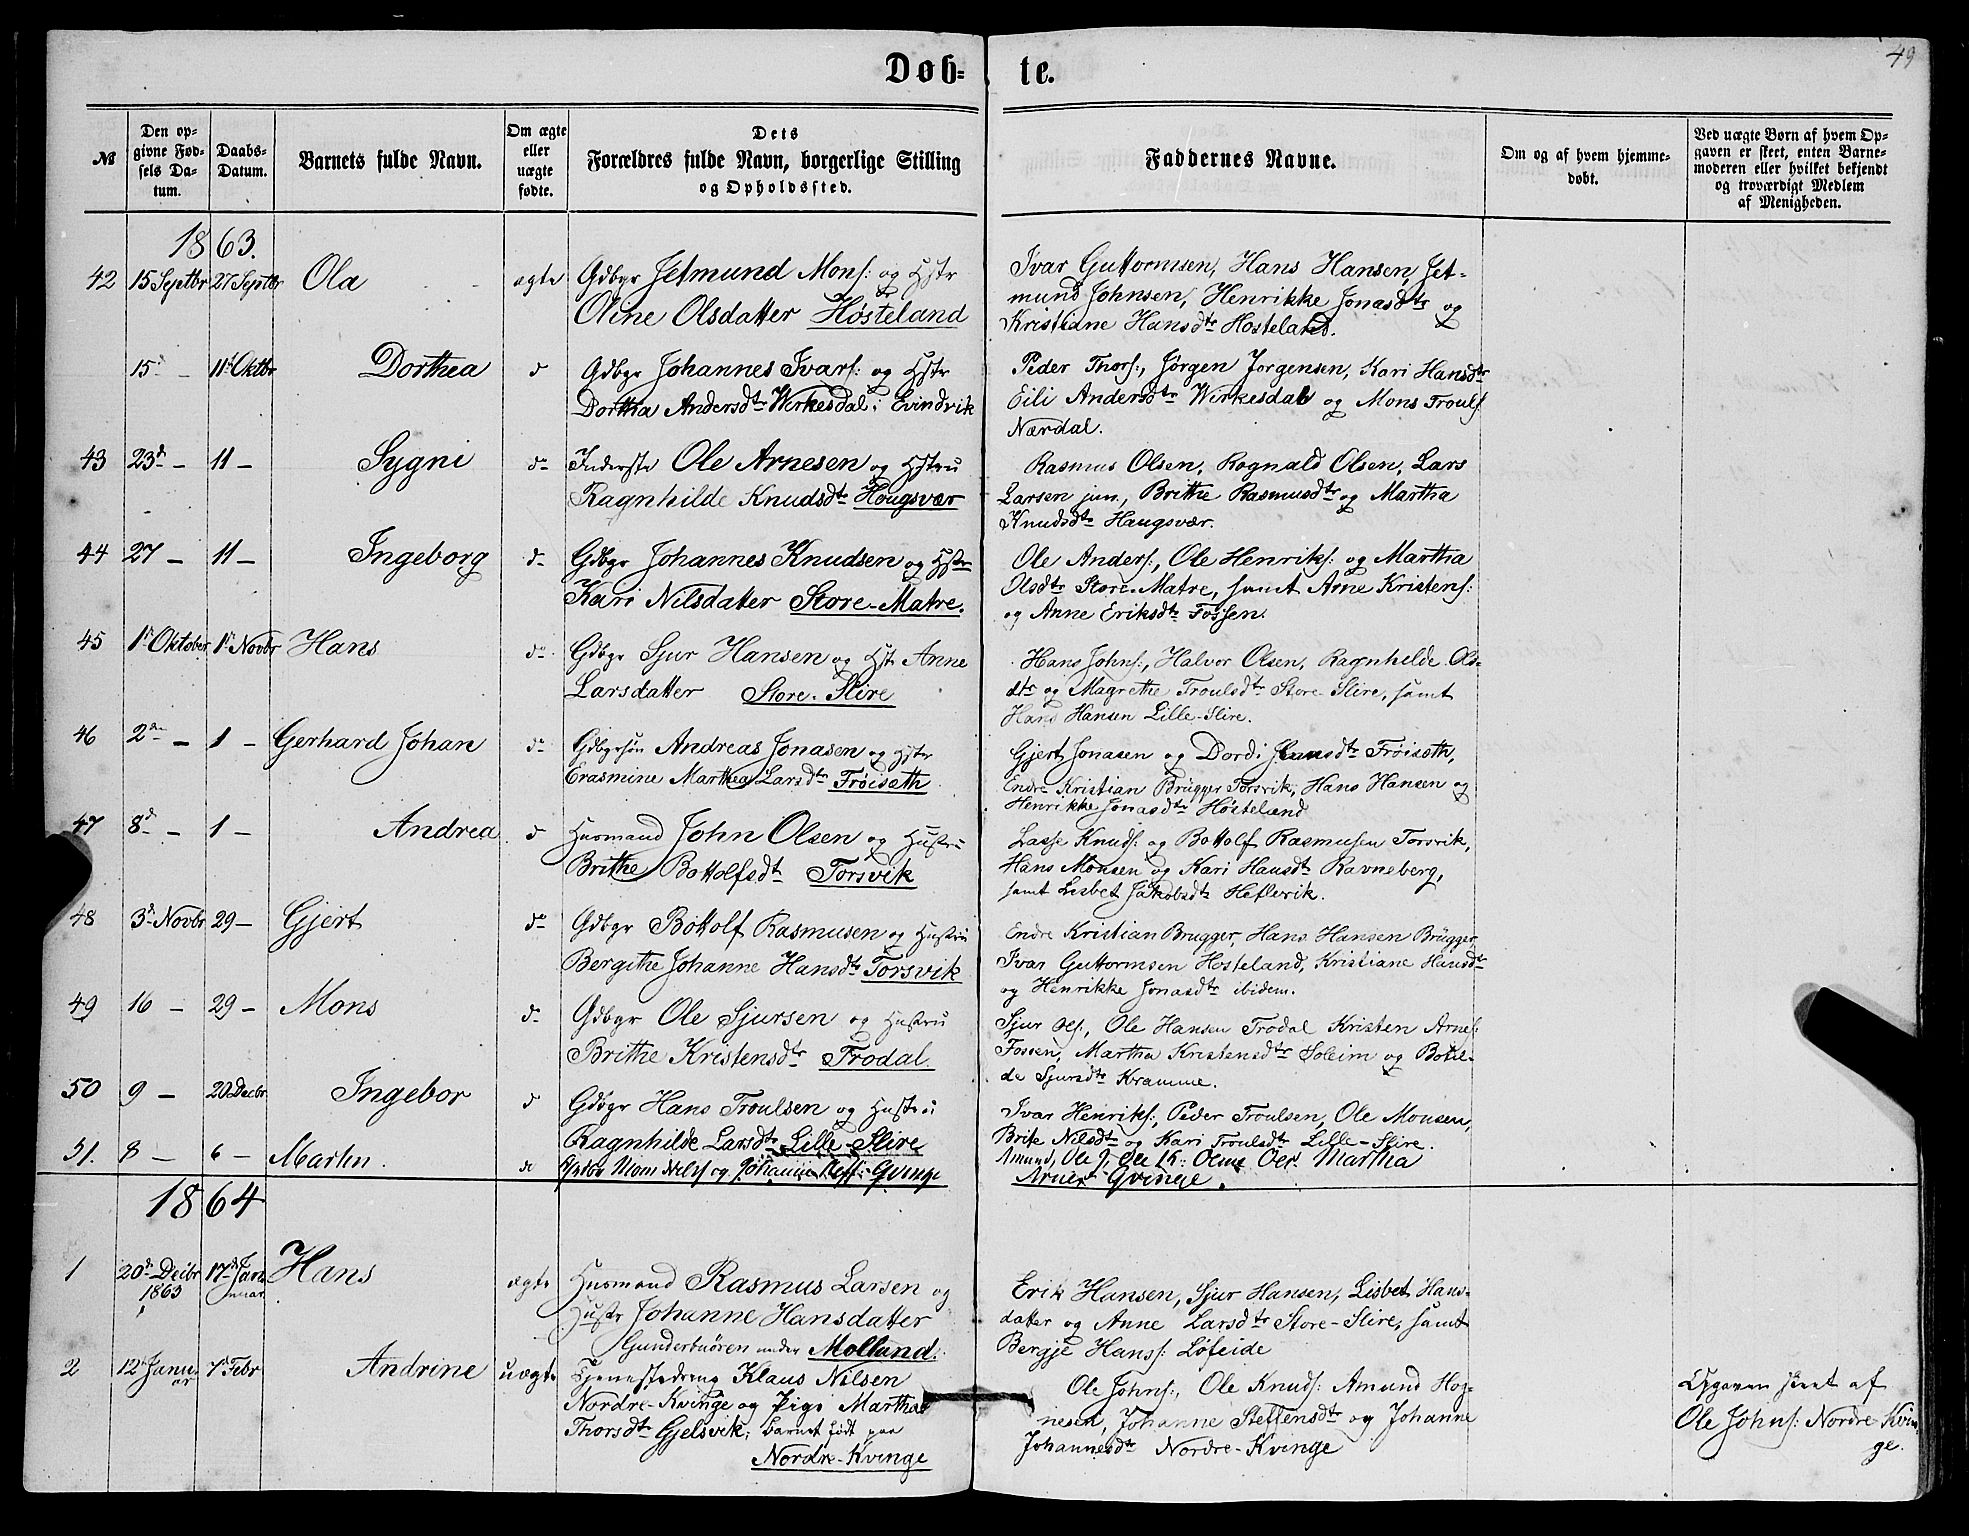 Døb-te.
49
№
Den op-
givne Fød-
sels Da-
tum.
Daabs-
Datum.
Barnets fulde Navn.
Om ægte
eller
uægte
fødte.
Dets
Forældres fulde Navn, borgerlige Stilling
og Opholdssted.
Faddernes Navne.
Om og af hvem hjemme-
døbt.
Ved uægte Børn af hvem Op-
gaven er skeet, enten Barne-
moderen eller hvilket bekjendt
og troværdigt Medlem
af Menigheden.
1863.
42 15 Septbr 27 Septbr Ola ægte Gdbgr Jetmund Mons: og Hstr
Oline Olsdatter Høsteland
Ivar Guttormsen, Hans Hansen, Jet-
mund Johnsen, Henrikke Jonasdtr og
Kristiane Hansdtr Hosteland.
15d - 11 Oktbr Dorthea d Gdbgr Johannes Ivars: og Hstr
Dortha Andersdtr Wirkesdal i Evindvik
Peder Thors:, Jørgen Jorgensen, Kari Hansdtr
Eili Andersdtr Wirkesdal og Mons Trouls:
Nærdal.
43 23d - 11 - Sygni do Inderste Ole Arnesen og Hstru
Ragnhilde Knudsdtr Hougsvær
Rasmus Olsen, Rognald Olsen, Lars
Larsen jun., Brithe Rasmusdtr og Martha
Knudsdtr Haugsvær.
44 27 - 11 - Ingeborg d- Gdbgr Johannes Knudsen og Hstr
Kari Nilsdatter Store-Matre.
Ole Anders:, Ole Henriks: og Martha
Olsdtr Store-Matre, samt Arne Kristens:
og Anne Eriksdtr Fossen.
45 1 Oktober 1 Novbr Hans do Gdbgr Sjur Hansen og Hst Anne
Larsdatter Store-Slire
Hans Johns:, Halvor Olsen, Ragnhelde Ols-
dtr og Magrethe Troulsdtr Store Slire, samt
Hans Hansen Lille-Slire.
46 2den - 1 - Gerhard Johan do Gdbgrsøn Andreas Jonasen og Hstr
Erasmine Marthea Larsdtr Frøisøth
Gjert Jonasen og Dordi Jensdtr Frøisøth,
Endre Kristian Brügger Torsvik, Hans Hansen og
Henrikke Jonasdtr Høsteland
47 8d - 1 - Andrea d Husmand John Olsen og Hustru
Brithe Bottolfsdtr Torsvik
Lasse Knuds: og Bottolf Rasmusen Torsvik,
Hans Monsen og Kari Hansdtr Ravneberg,
samt Lisbet Jakobsdtr Heflevik.
48 3d Novbr 29 - Gjert do Gdbgr Bottolf Rasmusen og Hustru
Bergithe Johanne Hansdtr Torsvik
Endre Kristian Brugger, Hans Hansen Brügger,
Ivar Guttormsen Hosteland, Kristiane Hansdtr
og Henrikke Jonasdtr ibidem.
49 16 - 29 - Mons d- Gdbgr Ole Sjursen og Hustru
Brithe Kristensdtr Trodal.
Sjur Ols:, Ole Hansen Trodal Kristen Arnes:
Fossen, Martha Kristensdtr Soleim og Botil-
de Sjursdtr Kramme.
50 9 - 20 Decbr Ingebor d Gdbgr Hans Troulsen og Hustru
Ragnhilde Larsdtr Lille-Slire
Ivar Henriks:, Peder Troulsen, Ole Monsen,
Brite Nilsdtr og Kari Troulsdtr Lille-Slire.
51. 8 - 6 - Martin. Johanne
Amund, Ole Martha
1864
1 20de Decbr 17d Jan- Hans ægte Husmand Rasmus Larsen og
1863 nuar
Hustr Johanne Hansdatter
Gunderbuören under Molland.
Erik Hansen, Sjur Hansen, Lisbet Hans-
datter og Anne Larsdtr Store-Slire, samt
Bergje Hans: Løfeide
2 12 Janu- 7 Febr Andrine uægte Tjenestedreng Klaus Nilsen
ar
Nordre-Kvinge og Pige Martha
Thorsdtr Gjelsvik; Barnet født paa
Nordre-Kvinge
Ole Johns:, Ole Knuds: Amund Hog-
nesen, Johanne Steffensdtr og Johanne
Johannesdtr Nordre-Kvinge
Opgaven skeet af
Ole Johns: Nordre-Kvin-
ge.